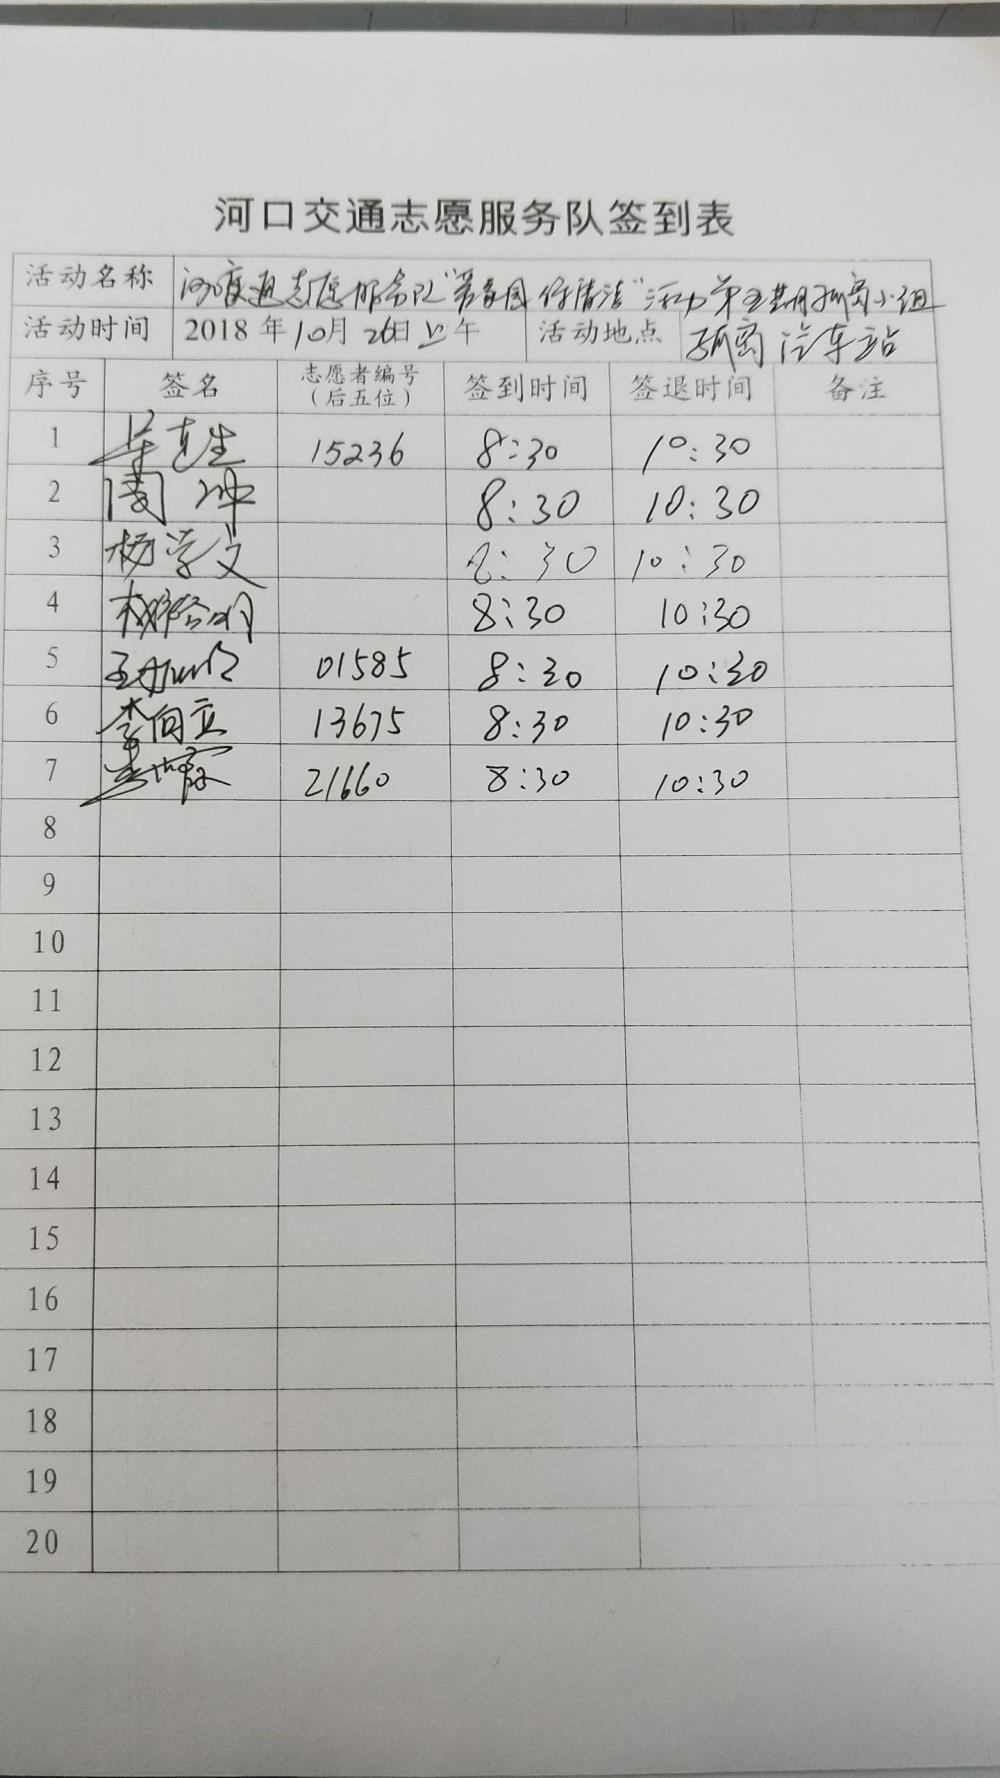 河口交通志愿服务队签到表
活动名称 河口交通志愿服务队"爱家园 保清洁"活动第五期孤岛小组
活动时间 2018年10月26日上午 活动地点 孤岛汽车站
序号 签名 志愿者编号（后五位） 签到时间 签退时间 备注
1 15236 8:30 10:30
2 周冲 8:30 10:30
3 杨学文 8:30 10:30
4 8:30 10:30
5 01585 8:30 10:30
6 李向立 13675 8:30 10:30
7 21660 8:30 10:30
8
9
10
11
12
13
14
15
16
17
18
19
20